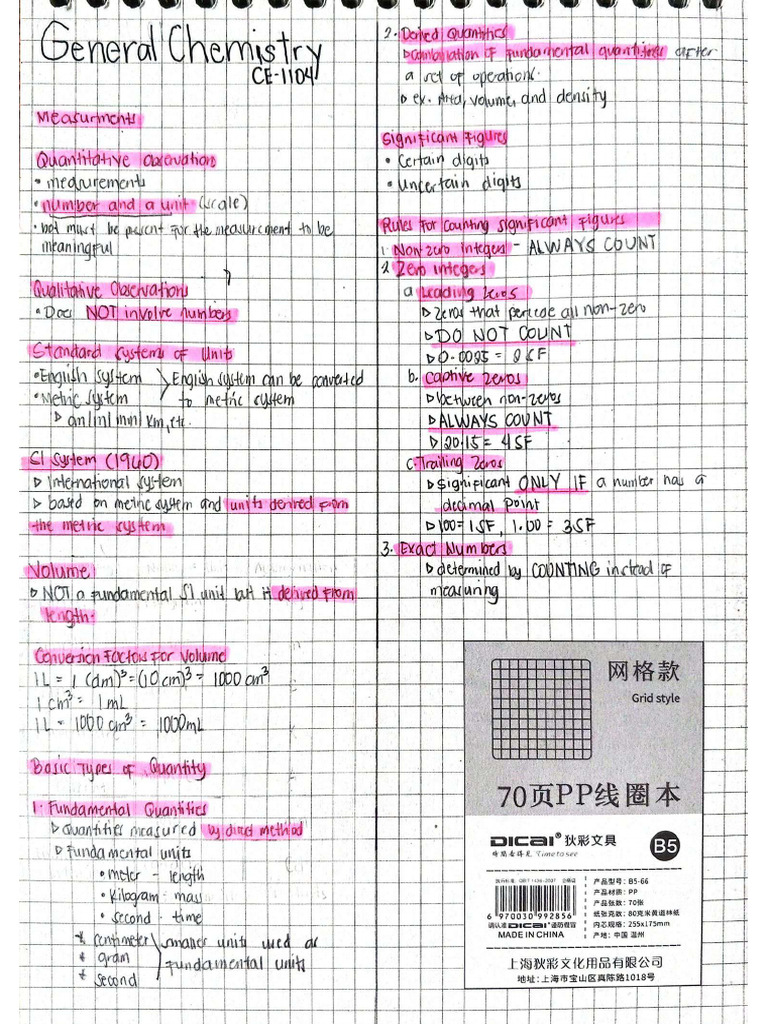 General Chemistry
CE-1104
Measurments
Quantitative Observation
• measurements
• number and a unit (scale)
• both must be present for the measurement to be
meaningful
Qualitative Observations
• Does NOT involve numbers
Standard systems of Units
• English system > English system can be converted
• Metric system to metric system
▷ cm/m/mm/km, etc.
SI System (1960)
▷ International system
▷ based on metric system and units derived from
the metric system
Volume
▷ NOT a fundamental SI unit but it derived from
length.
Conversion Factors for Volume
1 L = 1 (dm)³ = (10 cm)³ = 1000 cm³
1 cm³ = 1 mL
1 L = 1000 cm³ = 1000 mL
Basic Types of Quantity
1. Fundamental Quantities
▷ Quantities measured by direct method
▷ Fundamental units
• meter - length
• Kilogram - mass
• second - time
* centimeter \ smaller units used as
* gram > fundamental units
* second /
2. Derived Quantities
▷ Combination of fundamental quantities after
a set of operations.
▷ ex. Area, volume, and density
Significant Figures
• Certain digits
• Uncertain digits
Rules for Counting Significant Figures
1. Non-zero integers - ALWAYS COUNT
2. Zero integers
a. Leading zeros
▷ zeros that precede all non-zero
▷ DO NOT COUNT
▷ 0.0025 = 2 SF
b. Captive zeros
▷ between non-zeros
▷ ALWAYS COUNT
▷ 20.15 = 4 SF
c. Trailing zeros
▷ significant ONLY IF a number has a
decimal point
▷ 100 = 1 SF, 1.00 = 3 SF
3. Exact Numbers
▷ determined by COUNTING instead of
measuring
网格款
Grid style
70页PP线圈本
DiCai® 狄彩文具
Time to see
B5
6 970030 992856
DiCai®
MADE IN CHINA
产品型号: B5-66
产品材质: PP
产品张数: 70张
纸张克数: 80克米黄道林纸
内芯规格: 255x175mm
产地: 中国 温州
上海狄彩文化用品有限公司
地址: 上海市宝山区真陈路1018号